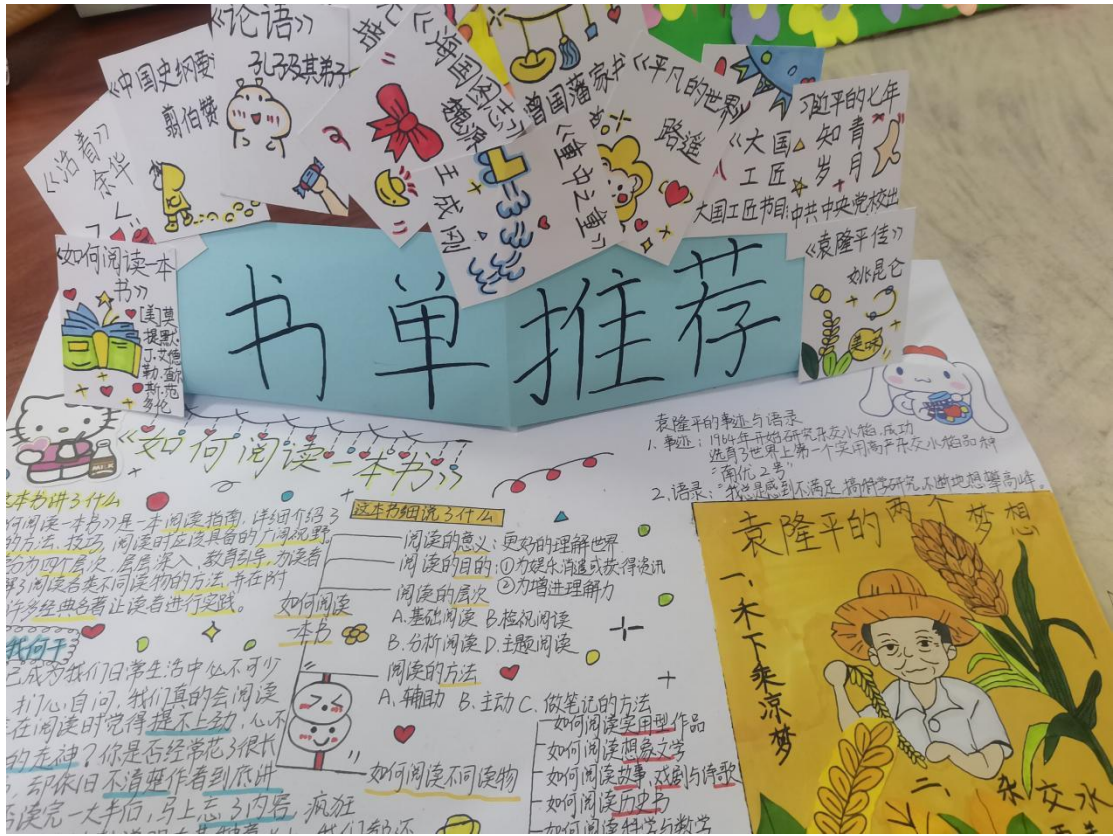 《论语》
孔子及其弟子
《海国图志》
魏源
曾国藩家书
《平凡的世界》
路遥
《中国史纲要》
翦伯赞
《活着》
余华
王成刚
《重中之重》
《大国
工匠
大国工匠节目
习近平的七年
知青
岁月
中共中央党校出
《如何阅读一本
书》
[美]莫
提默
丁.艾德
勒.查尔
斯.范
多伦
《袁隆平传》
姚昆仑
美味
书单推荐
MILK
《如何阅读一本书》
这本书讲了什么
何阅读一本书》是一本阅读指南,详细介绍了
的方法、技巧,阅读时应该具备的广阔视野
分为四个层次,层层深入,教育引导,为读者
解了阅读各类不同读物的方法,并在附
许多经典名著让读者进行实践。
我何干
已成为我们日常生活中必不可少
扪心自问,我们真的会阅读
在阅读时觉得提不上劲,心不
的走神?你是否经常花了很长
却依旧不清楚作者到底讲
读完一大半后,马上忘了内容,疯狂
这本书细说了什么
如何阅读
一本书
阅读的意义:更好的理解世界
阅读的目的:①为娱乐消遣或获得资讯
②为增进理解力
阅读的层次
A.基础阅读 B.检视阅读
B.分析阅读 D.主题阅读
阅读的方法
A.辅助 B.主动 C.做笔记的方法
如何阅读不同读物
如何阅读实用型作品
如何阅读想象文学
如何阅读故事、戏剧与诗歌
如何阅读历史书
如何阅读科学与数学
袁隆平的事迹与语录
1.事迹:1964年开始研究杂交水稻,成功
选育了世界上第一个实用高产杂交水稻品种
"南优2号"
2.语录:"我总是感到不满足,搞科学研究,不断地想攀高峰。
袁隆平的两个梦想
一、禾下乘凉梦
二、杂交水